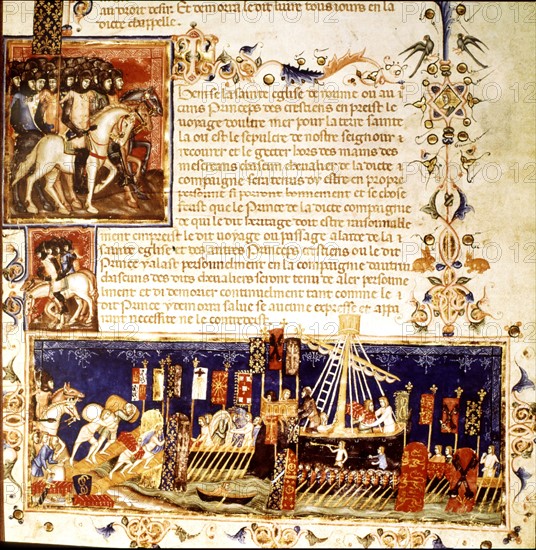 au droit desir. Et demoura le dit livre tous iours en la
dicte chappelle.
Item se la sainte eglise de rome ou au
cuns Princeps des crestiens en preist le
voyage doultre mer pour la terre sainte
la ou est le sepulcre de nostre seigneur
recouurer et le getter hors des mains des
mescreans chascun chevalier de la dicte
compaignie sera tenus dy estre en propre
personne se bonement et se chose
fust que le Prince de la dicte compaignie
ce qui le dit heritage doit estre raisonnable
ment empreist le dit voyage ou passage a de la
sainte eglise et des autres Princeps crestiens ou le dit
Prince y alast personnelment en la compaignie dautrui
chascuns des dits chevaliers seront tenu de aler personne
lment et di demorier continuelment tant comme le
dit Prince y demorra salue se aucune expresse et appa
rant necessite ne le contredit